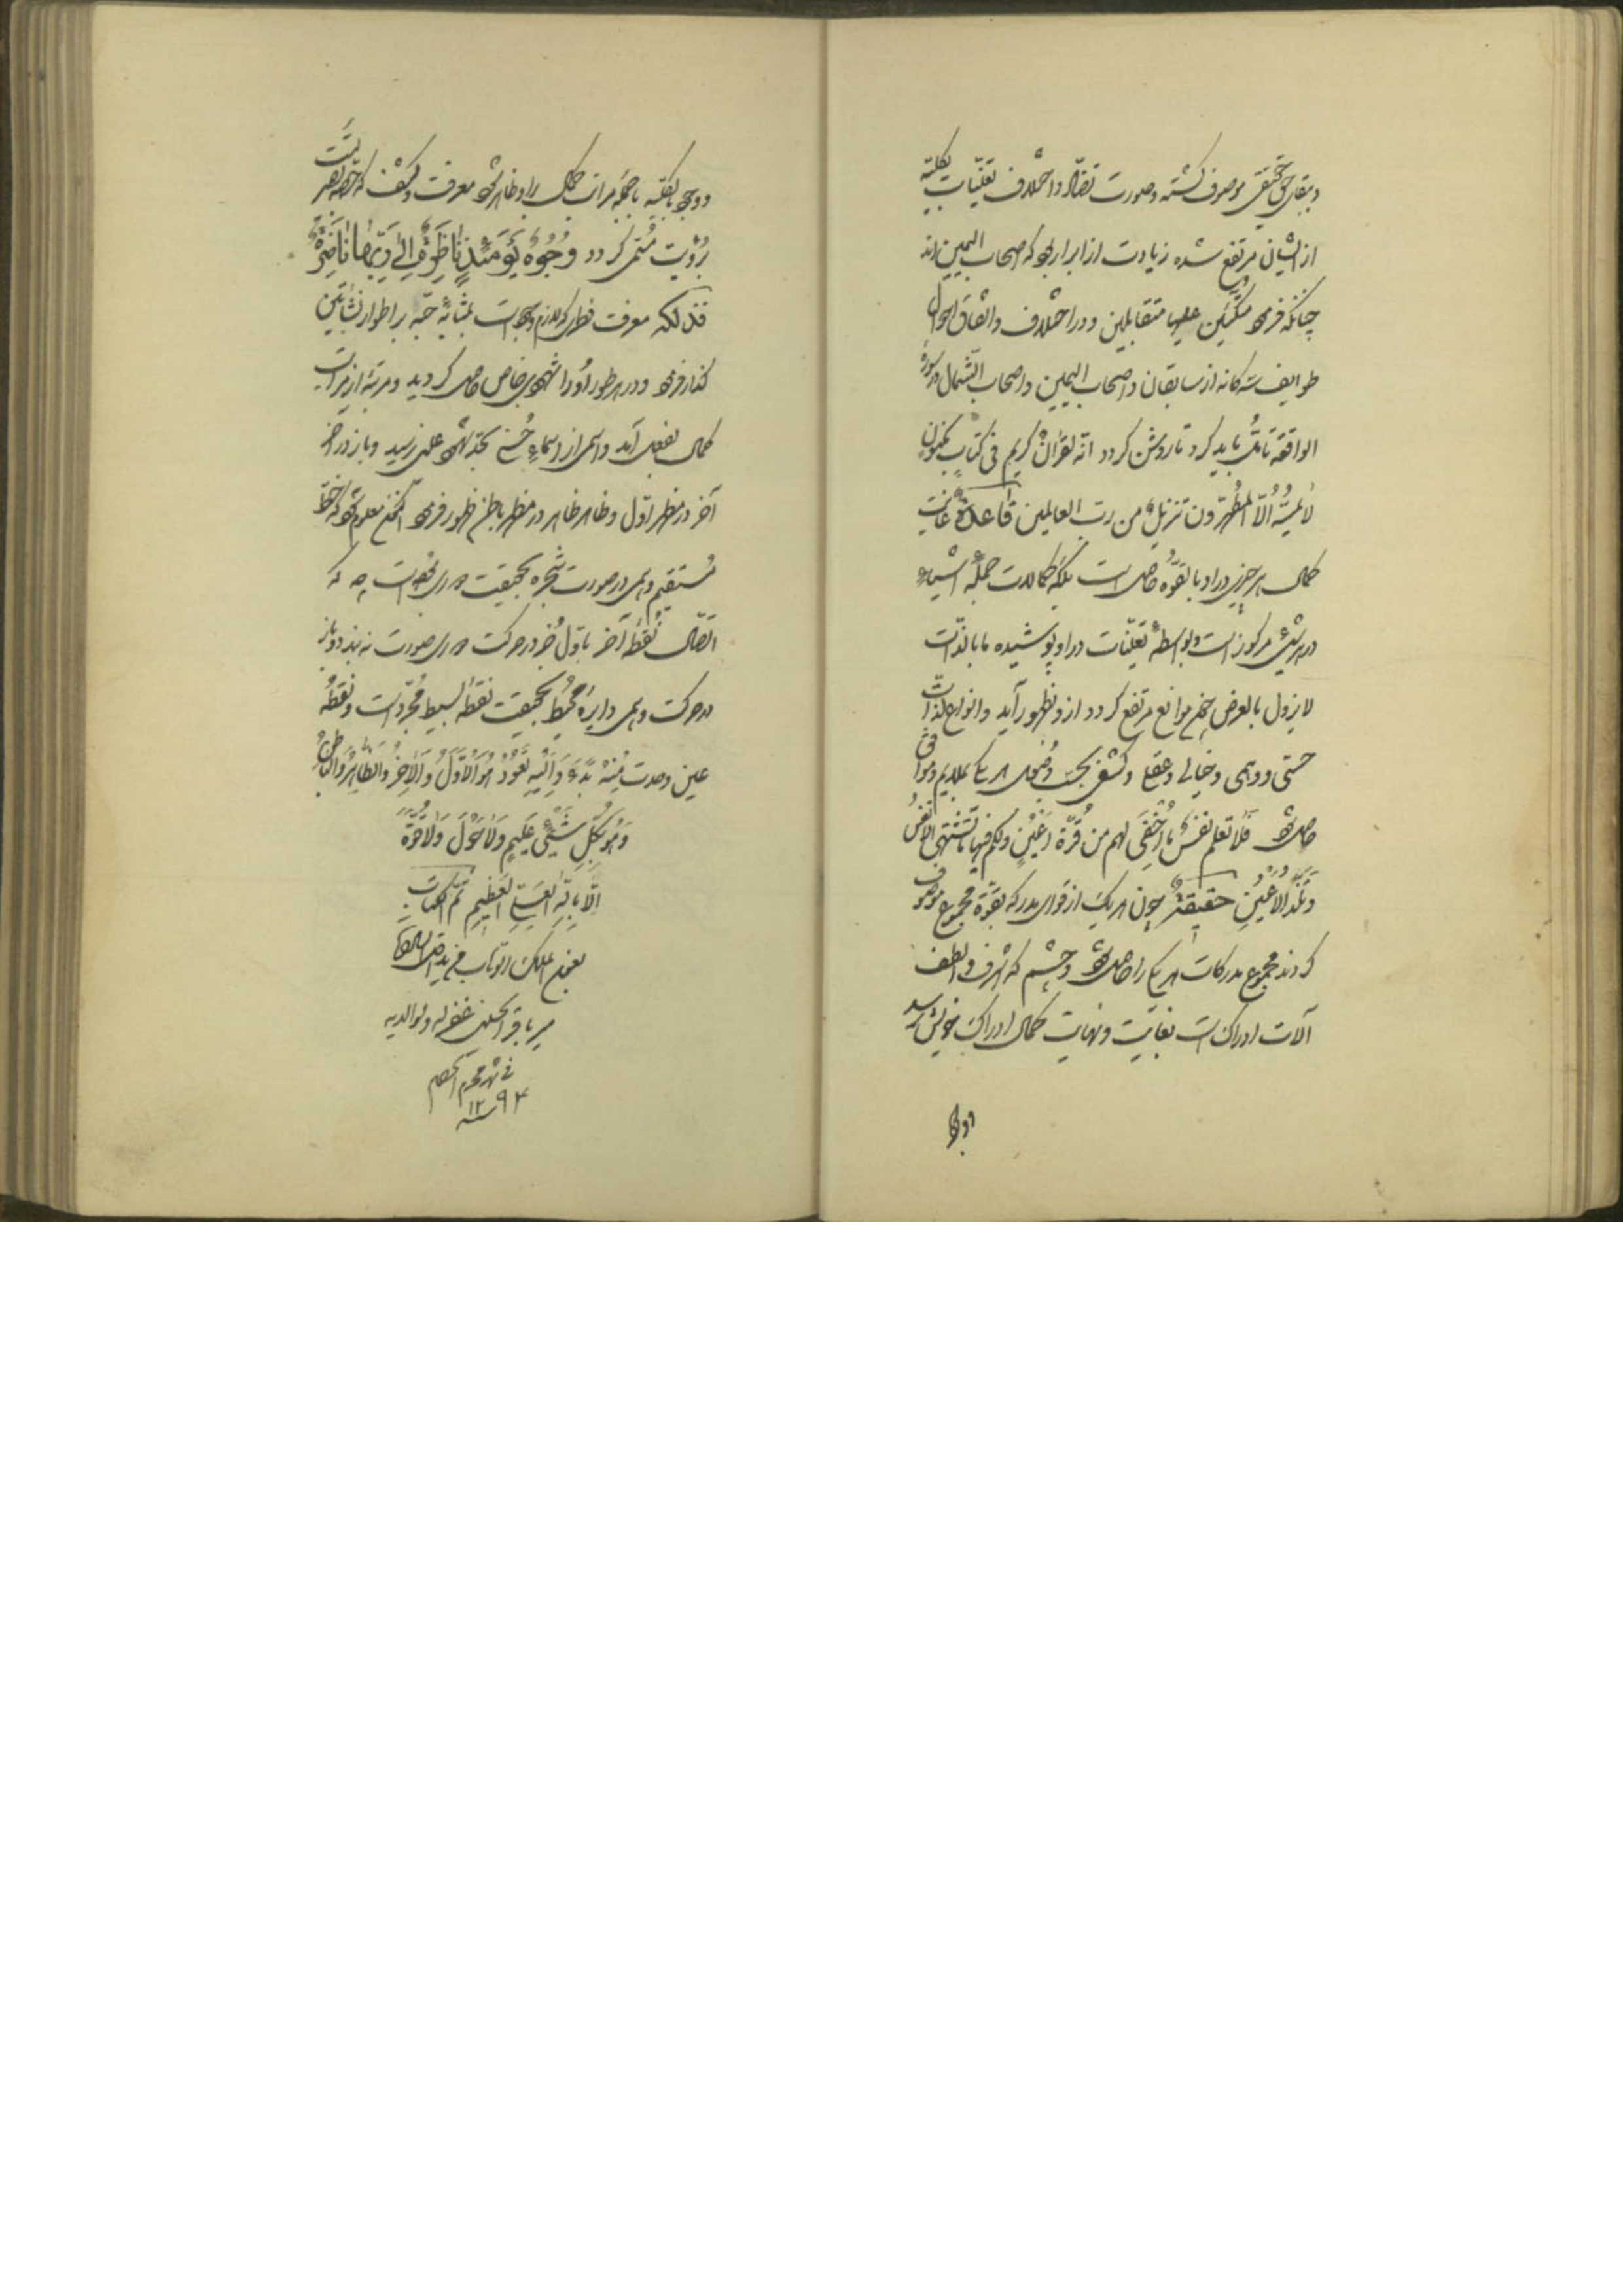 و ببقای حق حقیقی موصوف گشته و صورت تضاد و اختلاف تعینات بکلیه
از ایشان مرتفع شده زیادت از ابرار بود که اصحاب الیمین‌اند
چنانکه فرمود متکئین علیها متقابلین و در اختلاف و اتفاق احوال
طوایف سه‌گانه از سابقان و اصحاب الیمین و اصحاب الشمال در سورهٔ
الواقعه تأمل باید کرد تا روشن گردد انه لقرآن کریم فی کتاب مکنون
لا یمسه الا المطهرون تنزیل من رب العالمین قاعدة غایت
کمال هر چیزی در او بالقوه حاصل است بلکه کمالات جملهٔ اشیاء
در هر شیئی مرکوز است و بواسطهٔ تعینات در او پوشیده ما بالذات
لا یزول بالعرض چون موانع مرتفع گردد ازو بظهور آید و انواع لذات
حسی و وهمی و خیالی و عقلی و کشفی بحسب هر یک ملایم و موافق
حاصل شود فلا تعلم نفس ما اخفی لهم من قرة اعین ولکم فیها ما تشتهی الانفس
و تلذ الاعین حقیقة چون هر یک از قوای مدرکه بقوة مجموع موصوف
گردند مجموع مدرکات هر یک را حاصل شود و چشم که اشرف و الطف
آلات ادراک است بغایت و نهایت کمال ادراک خویش رسد
و وجود بکلیه با جمله مراتب کمال برو ظاهر شود معرفت و کشف که خاصهٔ بصیرت
برؤیت مسمی گردد وجوه یومئذ ناضرة الی ربها ناظرة
فذلکه معرفت فطری که لازم وجود است بمثابهٔ حبه بر اطوار نشأتین
گذار فرمود و در هر طور او را شهودی خاص حاصل گردید و مرتبهٔ از مراتب
کمال بفعل آمد و اسمی از اسماء حسنی بحد شهود علمی رسید و باز در آخر
آخر در مظهر اول و ظاهر ظاهر در مظهر باطن ظهور فرمود اکنون معلوم شود که خط
مستقیم وهمی در صورت شجره بحقیقت دوری بوده است چه که
اتصال نقطهٔ آخر باول جز در حرکت دوری صورت نه بندد و باز
در حرکت وهمی دایره محیط بحقیقت نقطهٔ بسیط مجرد است و نقطه
عین وحدت منه بدء و الیه تعود هو الاول و الآخر و الظاهر و الباطن
و هو بکل شیئ علیم و لا حول و لا قوة
الا بالله العلی العظیم تم الکتاب
بعون الملک الوهاب فی ید اقل
میر باقر الحسینی غفر له و لوالدیه
فی شهر محرم الحرام
سنه ۱۲۹۴